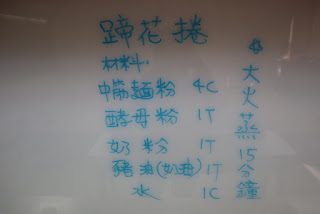 蹄花捲
材料:
中筋麵粉 4C
酵母粉 1T
奶粉 1T
豬油(奶油) 1T
水 1C
☆大火蒸15分鐘